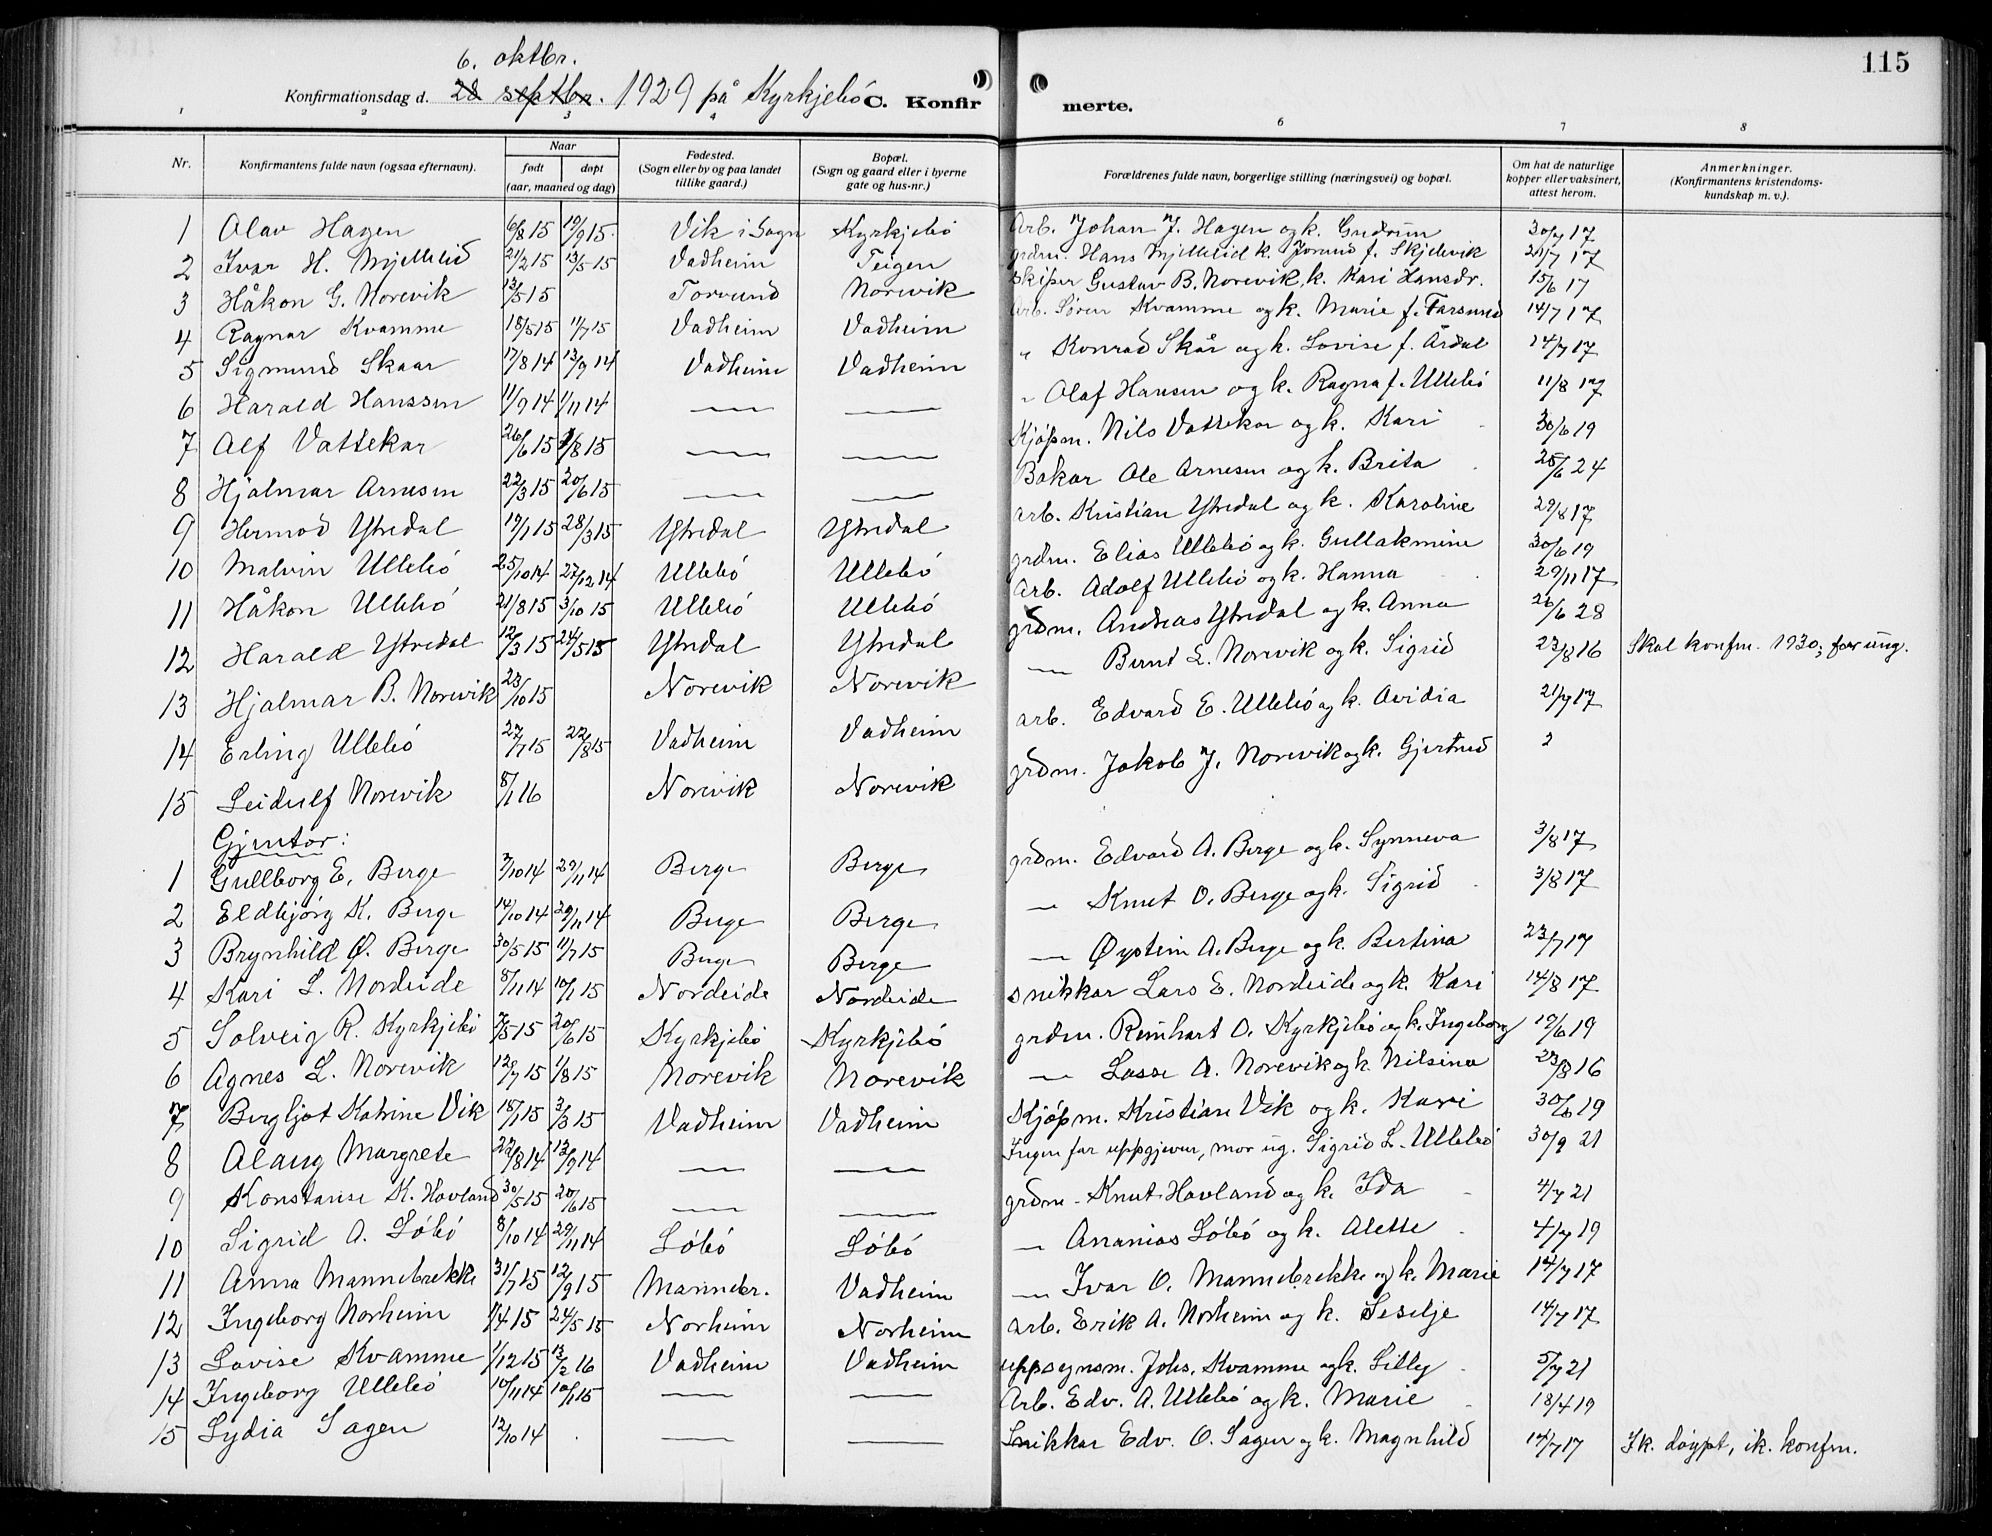 115
6. oktbr.
Konfirmationsdag d. 28 septbr. 1929 på Kyrkjebó C. Konfirmerte.
1 2 3 4 6 7 8
Nr. Konfirmantens fulde navn (ogsaa efternavn). Naar født døpt (aar, maaned og dag) Fødested. (Sogn eller by og paa landet tillike gaard.) Bopæl. (Sogn og gaard eller i byerne gate og hus-nr.) Forældrenes fulde navn, borgerlige stilling (næringsvei) og bopæl. Om hat de naturlige kopper eller vaksinert, attest herom. Anmerkninger. (Konfirmantens kristendomskundskap m. v.).
1 Olav Hagen 6/8 15 19/9 15 Vik i Sogn Kyrkjebó Arb. Johan J. Hagen og k. Gudrun 30/7 17
2 Ivar H. Mjellelid 21/2 15 13/5 15 Vadheim Teigen grdm. Hans Mjellelid k. Jorund f. Skjelevik 17
3 Håkon G. Norevik 13/5 15 Torvund Norevik Skiper Gustav B. Norevik, k. Kari Hansdr. 15/6 17
4 Ragnar Kvamme 18/5 15 11/7 15 Vadheim Vadheim Arb. Søren Kvamme og k. Marie f. Farsund 14/7 17
5 Sigmund Skaar 17/8 14 13/9 14 Vadheim Vadheim " Konrad Skår og k. Lovise f. Årdal 14/7 17
6 Harald Hanssen 11/9 14 1/11 14 — — " Olaf Hansen og k. Ragna f. Ullebó 11/8 17
7 Alf Vattekar 26/6 15 /8 15 — — Kjópm. Nils Vattekar og k. Kari 30/6 19
8 Hjalmar Arnesen 22/3 15 20/6 15 — — Bakar Ole Arnesen og k. Brita 25/6 24
9 Hermod Ytredal 19/1 15 28/3 15 Ytredal Ytredal arb. Kristian Ytredal og k. Karoline 29/8 17
10 Malvin Ullebó 25/10 14 27/12 14 Ullebó Ullebó grdm. Elias Ullebó og k. Gullakmine 30/6 19
11 Håkon Ullebó 21/8 15 3/10 15 Ullebó Ullebó Arb. Adolf Ullebó og k. Hanna 29/11 17
12 Harald Ytredal 12/3 15 24/5 15 Ytredal Ytredal grdm. Andreas Ytredal og k. Anna 26/6 28
13 Hjalmar B. Norevik 23/10 15 Norevik Norevik — Bernt L. Norevik og k. Sigrid 23/8 16 Skal konfm. 1930; for ung.
14 Erling Ullebó 27/7 15 22/8 15 Vadheim Vadheim arb. Edvard E. Ullebó og k. Avidia 21/7 17
15 Leidulf Norevik 8/1 16 Norevik Norevik grdm. Jakob J. Norevik og k. Gjertrud 2
Gjentor:
1 Gullborg E. Berge 3/10 14 29/11 14 Berge Berge grdm. Edvard A. Berge og k. Synneva 3/8 17
2 Eldbjórg K. Berge 14/10 14 29/11 14 Berge Berge — Knut O. Berge og k. Sigrid 3/8 17
3 Brynhild Ø. Berge 30/5 15 11/7 15 Berge Berge — Øystein A. Berge og k. Bertina 23/7 17
4 Kari L. Nordeide 8/11 14 10/1 15 Nordeide Nordeide snikkar Lars E. Nordeide og k. Kari 14/8 17
5 Solveig R. Kyrkjebó /5 15 20/6 15 Kyrkjebó Kyrkjebó grdm. Reinhart O. Kyrkjebó og k. Ingeborg 19/6 19
6 Agnes L. Norevik 12/7 15 1/8 15 Norevik Norevik — Lasse A. Norevik og k. Nilsina 23/8 16
7 Bergljot Katrine Vik 18/1 15 3/3 15 Vadheim Vadheim Kjópm. Kristian Vik og k. Kari 30/6 19
8 Alaug Margrete 22/8 14 13/9 14 — — Ingen far uppgjeven, mor ug. Sigrid L. Ullebó 30/9 21
9 Konstanse K. Hovland 30/5 15 20/6 15 — — grdm. Knut Hovland og k. Ida 4/7 21
10 Sigrid A. Lóbó 8/10 14 29/11 14 Lóbó Lóbó — Ananias Lóbó og k. Alette 4/7 19
11 Anna Mannebrekke 31/7 15 12/9 15 Mannebr. Vadheim — Ivar O. Mannebrekke og k. Marie 14/7 17
12 Ingeborg Norheim 1/4 15 24/5 15 Norheim Norheim arb. Erik A. Norheim og k. Seselje 14/7 17
13 Lovise Kvamme 1/12 15 13/2 16 Vadheim Vadheim uppsynsm. Johs. Kvamme og k. Lilly 5/7 21
14 Ingeborg Ullebó 10/11 14 10/1 15 — — Arb. Edv. A. Ullebó og k. Marie 18/4 19
15 Lydia Sagen 12/10 14 — — Snikkar Edv. O. Sagen og k. Magnhild 14/7 17 Ik. dóypt, ik. konfm.